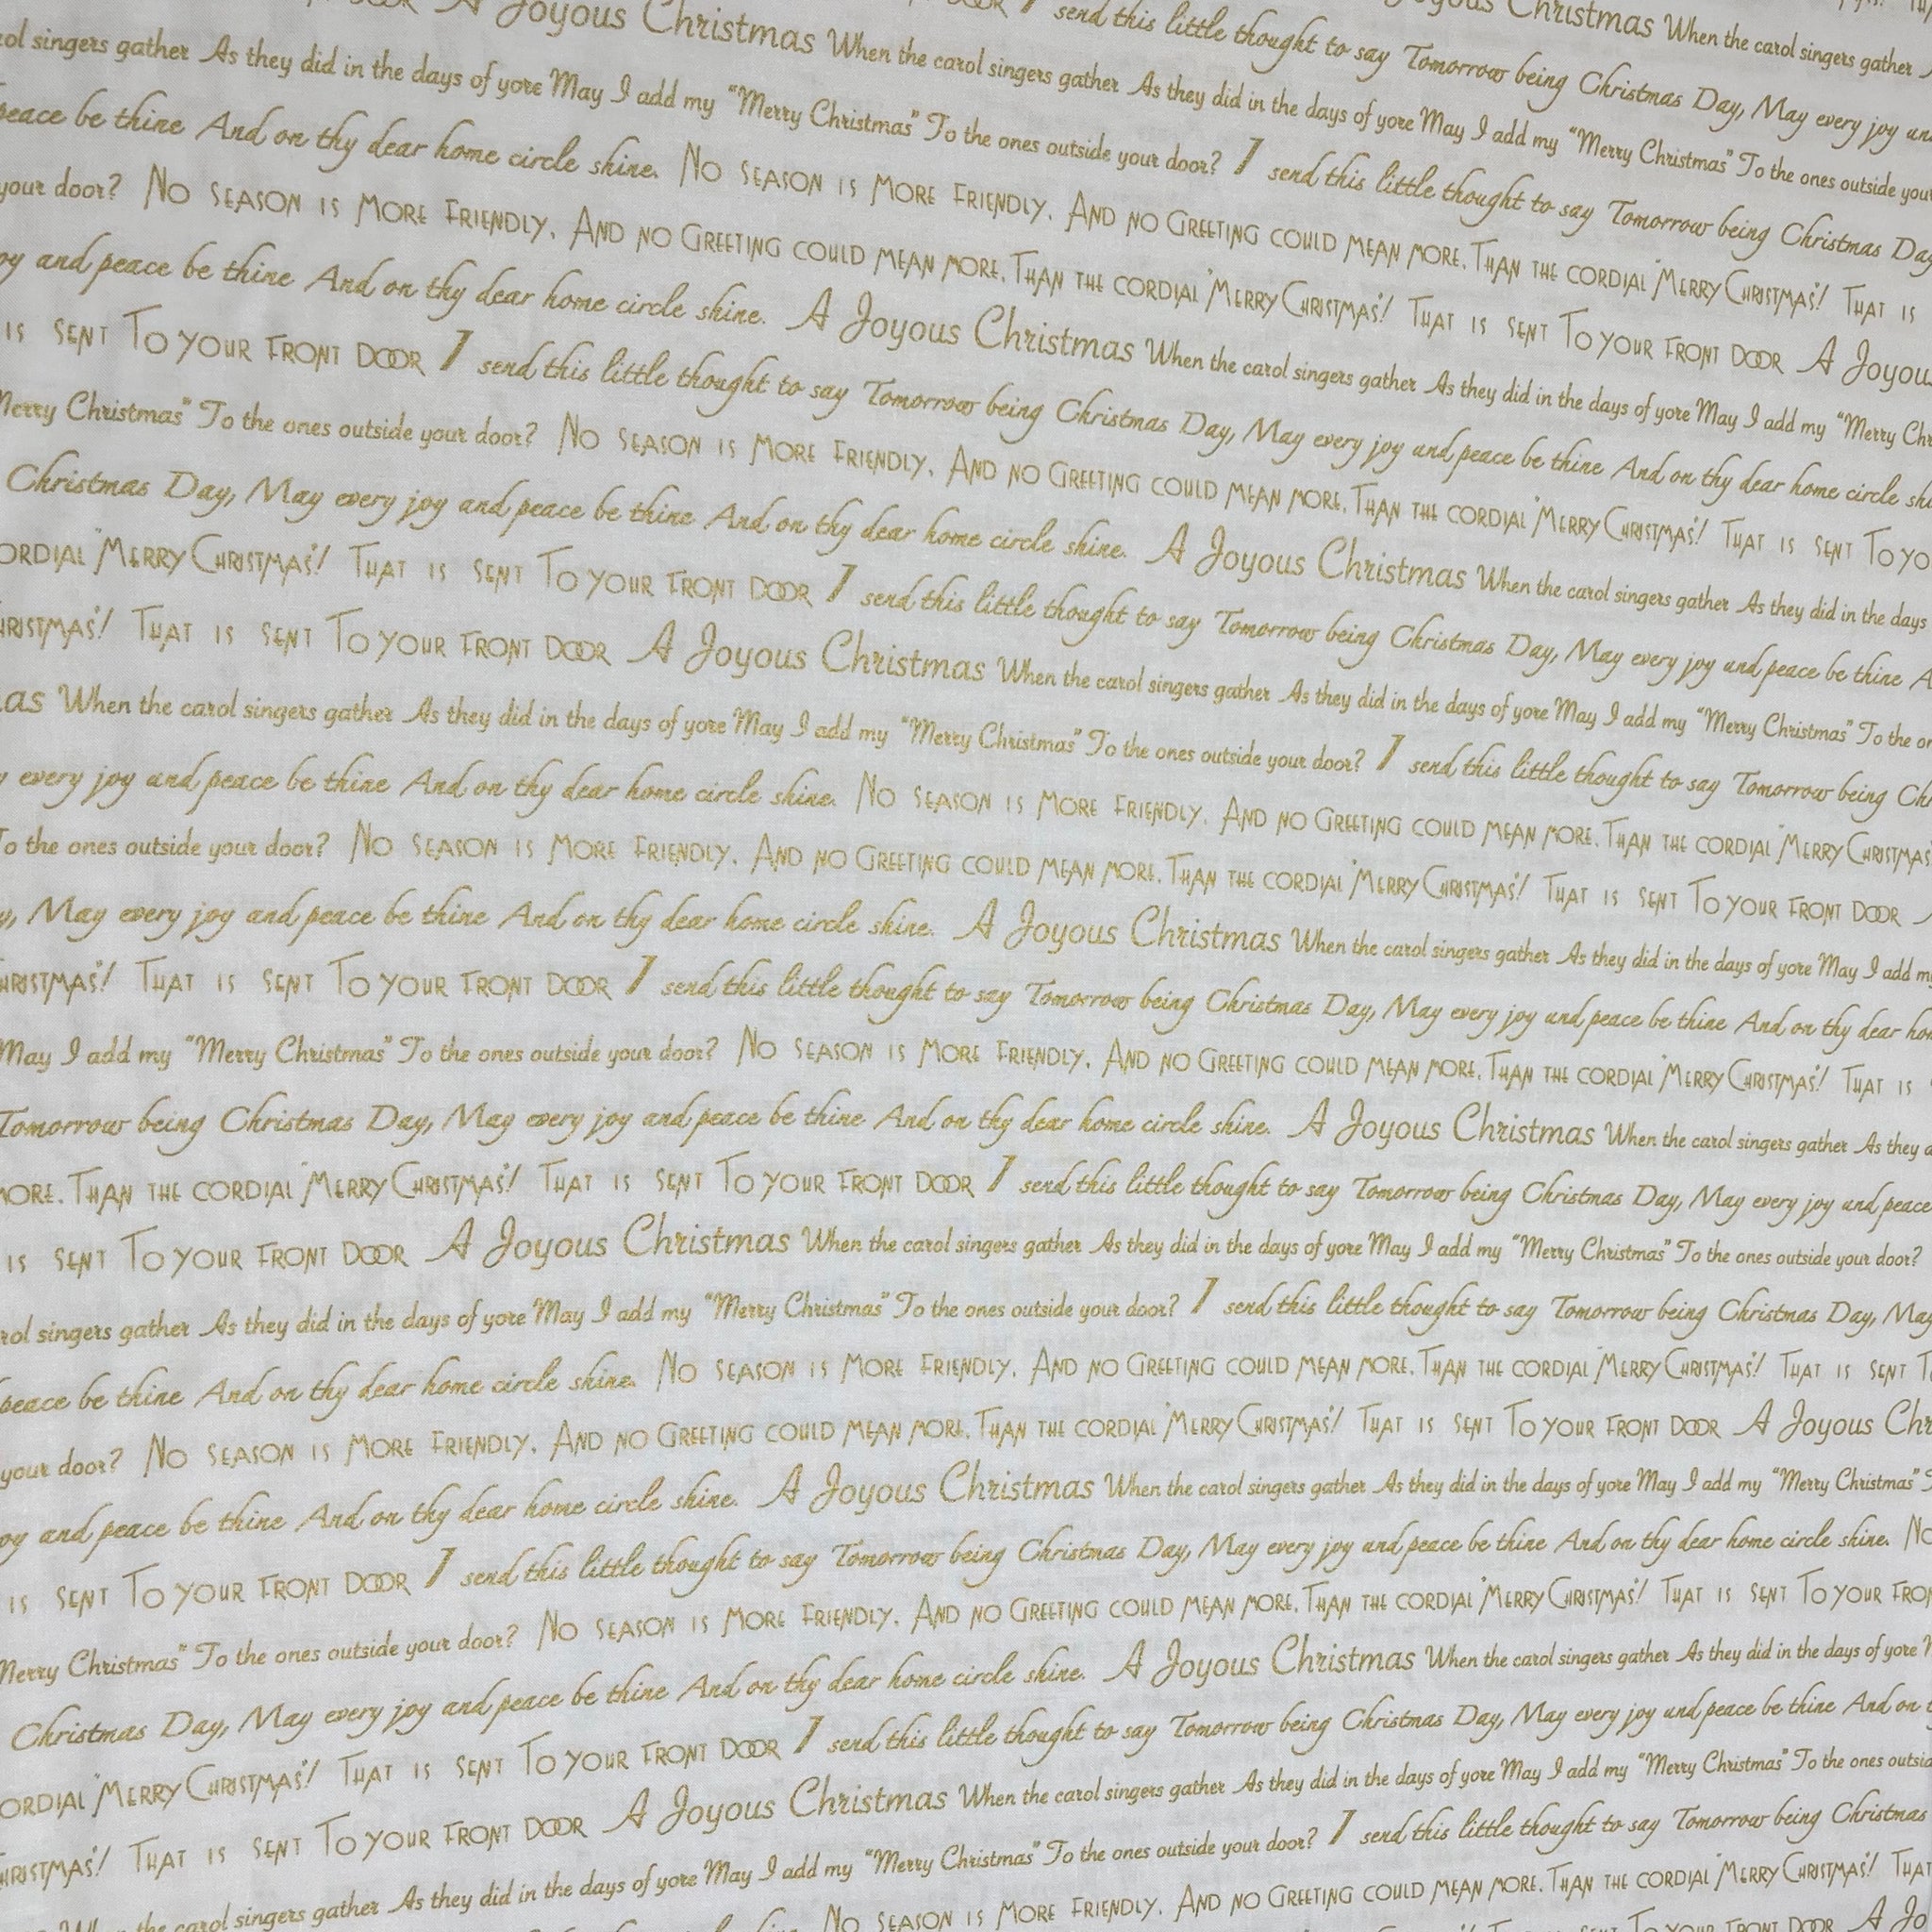 A Joyous Christmas When the carol singers gather
DOOR I send this little thought to say Tomorrow being Christmas Day, May every joy
singers gather As they did in the days of yore May I add my "Merry Christmas" To the ones outside your door? I send this little thought to say Tomorrow being Christmas Day
A Joyous Christmas When the carol singers gather As they did in the days of yore May I add my "Merry Christmas" To the ones outside your
peace be thine And on thy dear home circle shine. NO SEASON IS MORE FRIENDLY. AND NO GREETING COULD MEAN MORE. THAN THE CORDIAL "MERRY CHRISTMAS"! THAT IS
your door? NO SEASON IS MORE FRIENDLY. AND NO GREETING COULD MEAN MORE. THAN THE CORDIAL "MERRY CHRISTMAS"! THAT IS SENT TO YOUR FRONT DOOR A Joyou
and peace be thine And on thy dear home circle shine. A Joyous Christmas When the carol singers gather As they did in the days of yore May I add my "Merry
IS SENT TO YOUR FRONT DOOR I send this little thought to say Tomorrow being Christmas Day, May every joy and peace be thine And on thy dear home circle
Merry Christmas" To the ones outside your door? NO SEASON IS MORE FRIENDLY. AND NO GREETING COULD MEAN MORE. THAN THE CORDIAL "MERRY CHRISTMAS"! THAT IS SENT TO
Christmas Day, May every joy and peace be thine And on thy dear home circle shine. A Joyous Christmas When the carol singers gather As they did in the days
CORDIAL "MERRY CHRISTMAS"! THAT IS SENT TO YOUR FRONT DOOR I send this little thought to say Tomorrow being Christmas Day, May every joy and peace be thine
THAT IS SENT TO YOUR FRONT DOOR A Joyous Christmas When the carol singers gather As they did in the days of yore May I add my "Merry Christmas" To the
When the carol singers gather As they did in the days of yore May I add my "Merry Christmas" To the ones outside your door? I send this little thought to say Tomorrow being
every joy and peace be thine And on thy dear home circle shine. NO SEASON IS MORE FRIENDLY. AND NO GREETING COULD MEAN MORE. THAN THE CORDIAL "MERRY CHRISTMAS
To the ones outside your door? NO SEASON IS MORE FRIENDLY. AND NO GREETING COULD MEAN MORE. THAN THE CORDIAL "MERRY CHRISTMAS"! THAT IS SENT TO YOUR FRONT DOOR
May every joy and peace be thine And on thy dear home circle shine. A Joyous Christmas When the carol singers gather As they did in the days of yore May I add
THAT IS SENT TO YOUR FRONT DOOR I send this little thought to say Tomorrow being Christmas Day, May every joy and peace be thine And on thy dear
May I add my "Merry Christmas" To the ones outside your door? NO SEASON IS MORE FRIENDLY. AND NO GREETING COULD MEAN MORE. THAN THE CORDIAL "MERRY CHRISTMAS"! THAT IS
Tomorrow being Christmas Day, May every joy and peace be thine And on thy dear home circle shine. A Joyous Christmas When the carol singers gather As they
MORE. THAN THE CORDIAL "MERRY CHRISTMAS"! THAT IS SENT TO YOUR FRONT DOOR I send this little thought to say Tomorrow being Christmas Day, May every joy and peace
IS SENT TO YOUR FRONT DOOR A Joyous Christmas When the carol singers gather As they did in the days of yore May I add my "Merry Christmas" To the ones outside your door?
singers gather As they did in the days of yore May I add my "Merry Christmas" To the ones outside your door? I send this little thought to say Tomorrow being Christmas Day, May
peace be thine And on thy dear home circle shine. NO SEASON IS MORE FRIENDLY. AND NO GREETING COULD MEAN MORE. THAN THE CORDIAL "MERRY CHRISTMAS"! THAT IS SENT
your door? NO SEASON IS MORE FRIENDLY. AND NO GREETING COULD MEAN MORE. THAN THE CORDIAL "MERRY CHRISTMAS"! THAT IS SENT TO YOUR FRONT DOOR A Joyous Chr
and peace be thine And on thy dear home circle shine. A Joyous Christmas When the carol singers gather As they did in the days of yore May I add my "Merry Christmas"
IS SENT TO YOUR FRONT DOOR I send this little thought to say Tomorrow being Christmas Day, May every joy and peace be thine And on thy dear home circle shine. NO
Merry Christmas" To the ones outside your door? NO SEASON IS MORE FRIENDLY. AND NO GREETING COULD MEAN MORE. THAN THE CORDIAL "MERRY CHRISTMAS"! THAT IS SENT TO YOUR FRON
Christmas Day, May every joy and peace be thine And on thy dear home circle shine. A Joyous Christmas When the carol singers gather As they did in the days of yore
CORDIAL "MERRY CHRISTMAS"! THAT IS SENT TO YOUR FRONT DOOR I send this little thought to say Tomorrow being Christmas Day, May every joy and peace be thine And on
THAT IS SENT TO YOUR FRONT DOOR A Joyous Christmas When the carol singers gather As they did in the days of yore May I add my "Merry Christmas" To the ones outside
the carol singers gather As they did in the days of yore May I add my "Merry Christmas" To the ones outside your door? I send this little thought to say Tomorrow being Christmas
NO SEASON IS MORE FRIENDLY. AND NO GREETING COULD MEAN MORE. THAN THE CORDIAL "MERRY CHRISTMAS"! THAT
SENT TO YOUR FRONT DOOR A Jo